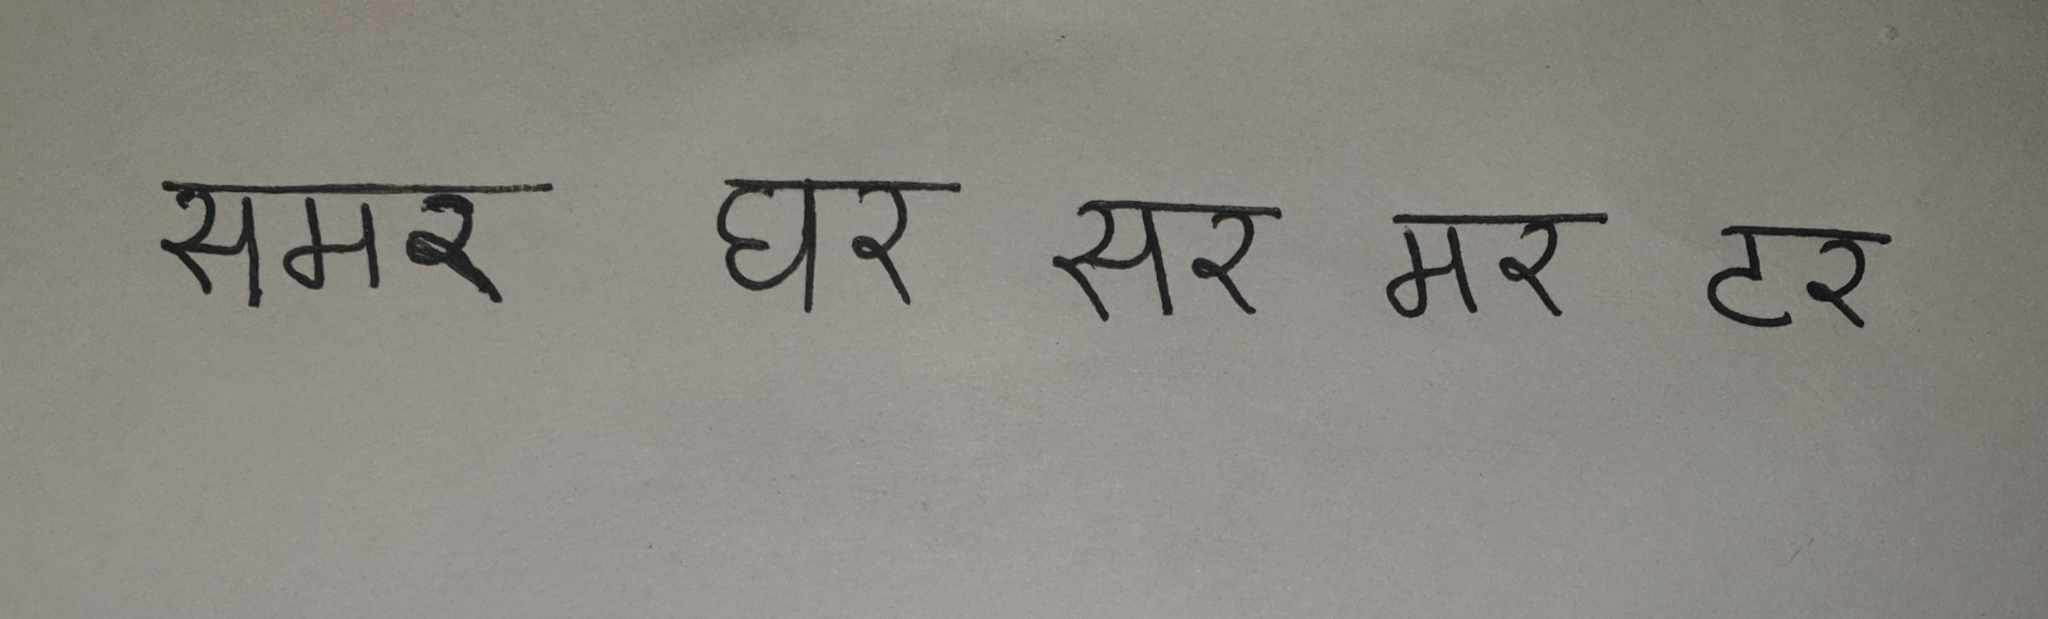 समर घर सर मर टर